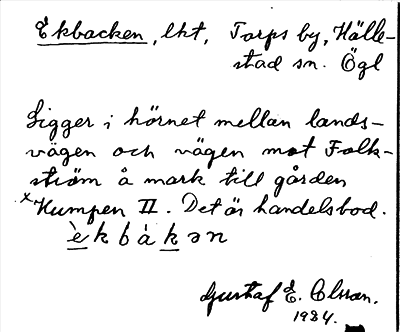 Ekbacken, lht, Torps by, Hälle-
stad sn. Ögl
Ligger i hörnet mellan lands-
vägen och vägen mot Folk-
ström å mark till gården
xHumpen II. Det är handelsbod.
èkbàkən
Gustaf E. Olsson.
1984.